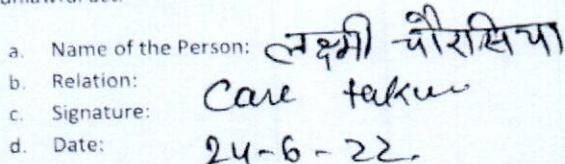 a. Name of the Person: लक्ष्मी चौरसिया
b. Relation: Care taker
c. Signature:
d. Date: 24-6-22.